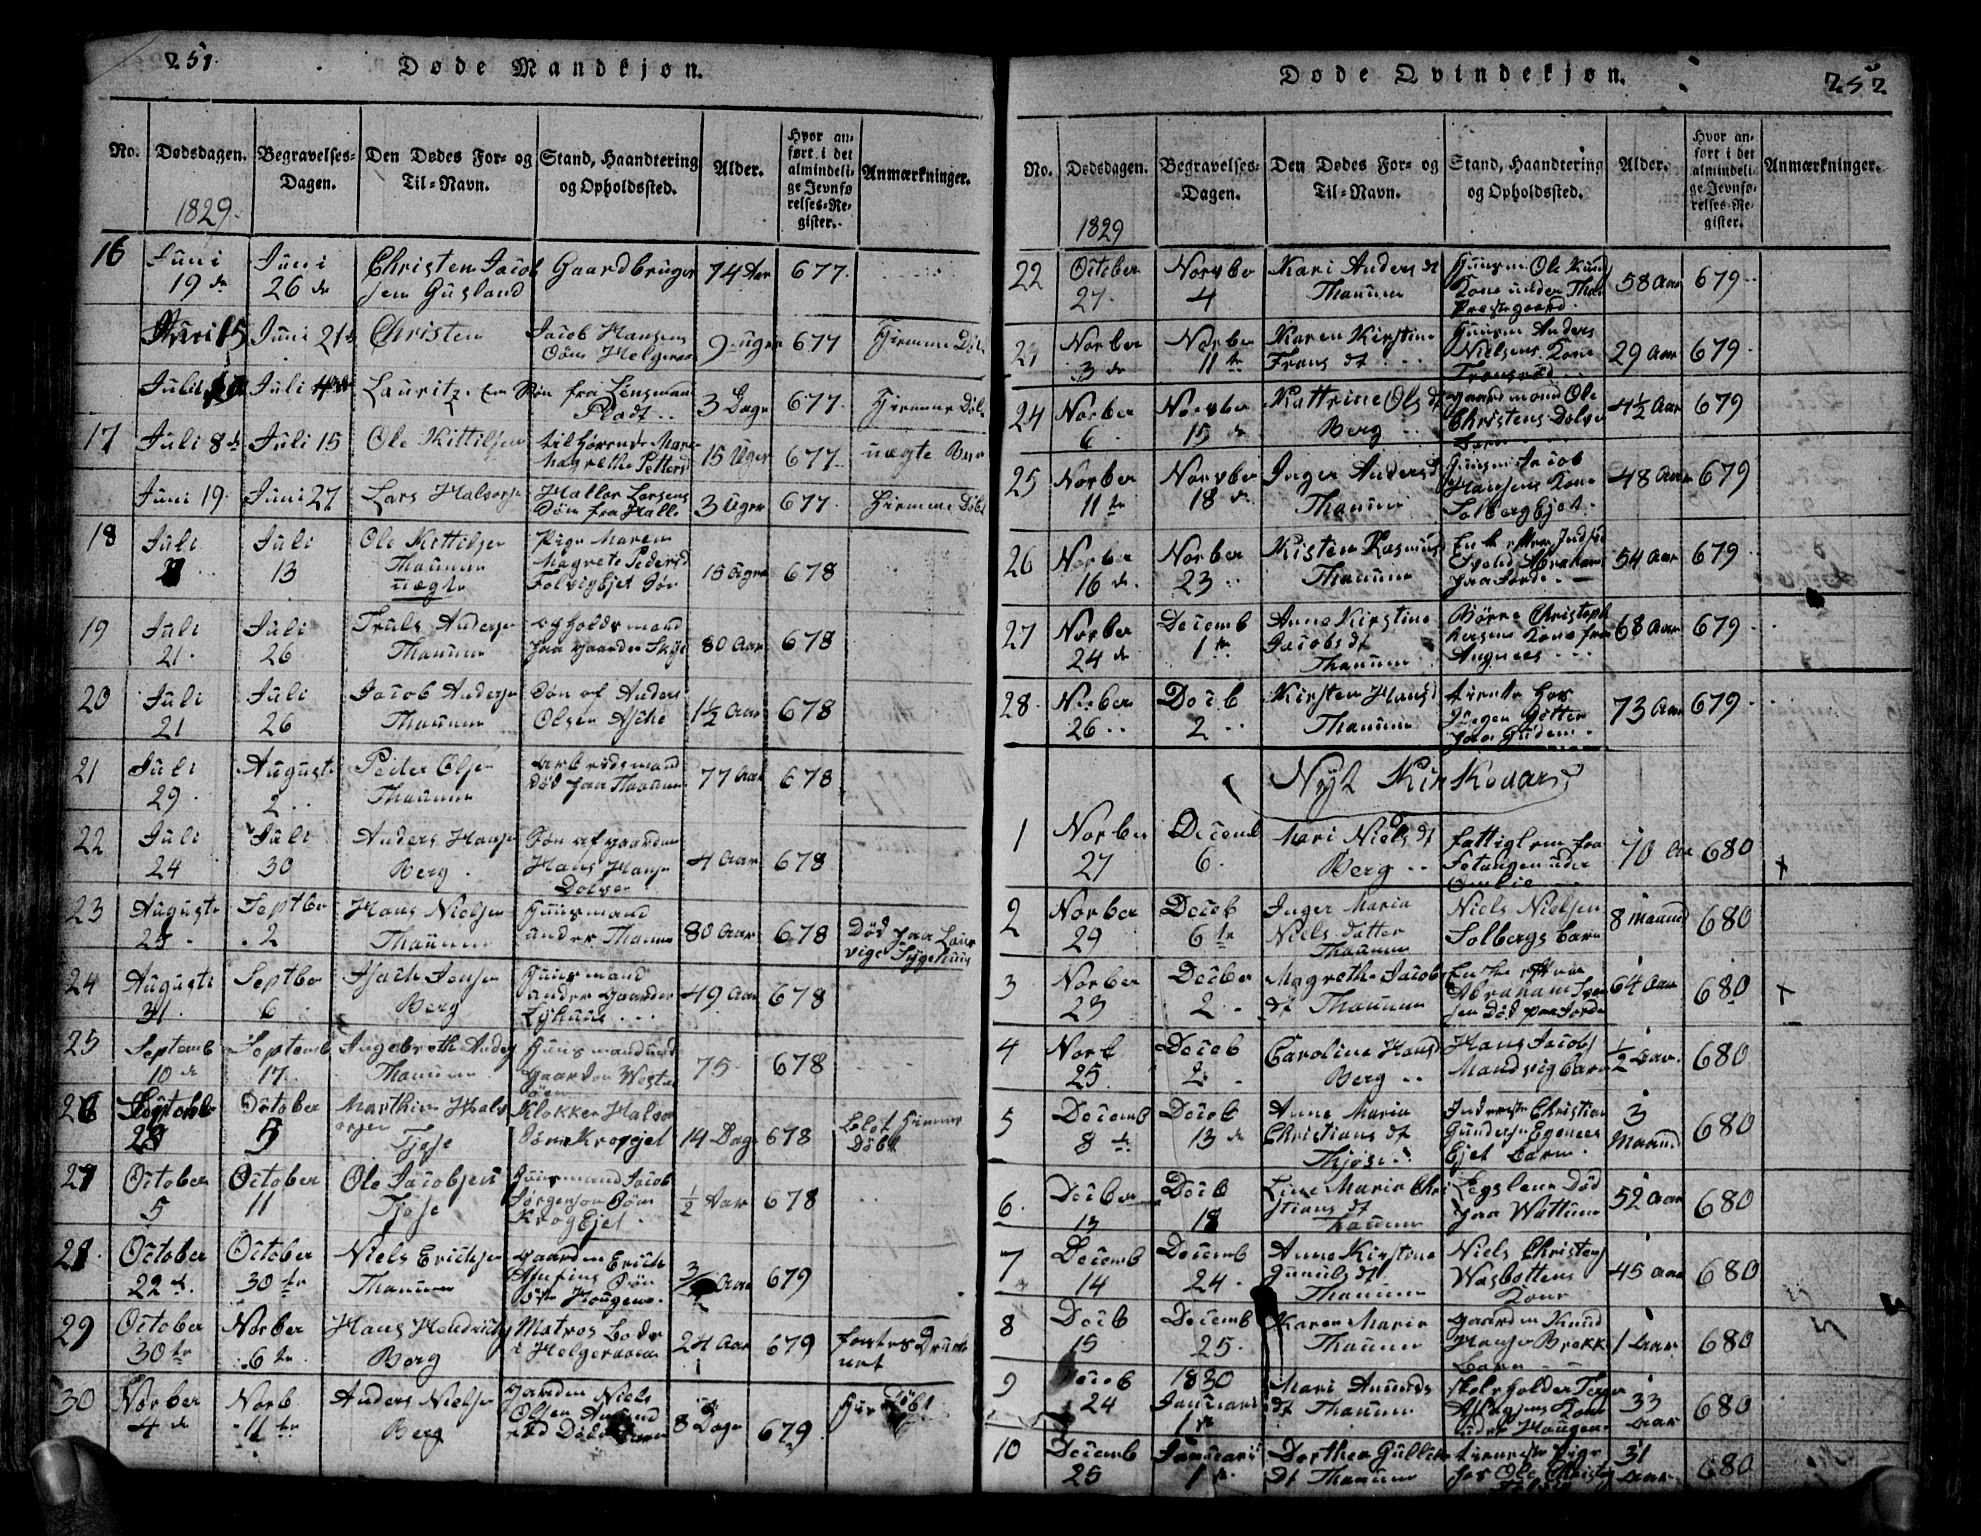 251.
Døde Mandkjøn.
No. Dødsdagen. Begravelses-Dagen. Den Dødes For- og Til-Navn. Stand, Haandtering og Opholdssted. Alder. Hvor anført i det almindelige Jevnførelses-Register. Anmærkninger.
1829.
16 Juni 19 de Juni 26 de Christen Jacobsen Gusland Gaardbruger 74 Aar 677.
Juni 21 Christen Jacob Hansens Søn Helgeroe 9 uger 677 Hjemme Døbt
Juli 4de Lauritz. En Søn fra Lensmand Pladt 3 Dage 677. Hjemme Døbt
17 Juli 8de Juli 15 Ole Kittilsen tilhørende Maren Magrethe Petters 15 Uger 677. uægte Barn
Juni 19. Juni 27 Lars Halvorsen Hallor Larsens Søn fra Halle 3 Uger 677. Hjemme Døbt
18 Juli Juli 13 Ole Kittilsen Thanum uægte Pige Maren Magrete Peders Folvig Ejet Søn 15 Uger 678
19 Juli 21. Juli 26 Truls Andersen Thanum opholdsmand paa gaarden Skije 80 Aar 678
20 Juli 21 Juli 26 Jacob Andersen Thanum Søn af Anders Olsen Aske 1½ Aar 678
21 Juli 29. Augusti 2 Peder Olsen Thanum arbeidsmand død paa Thanum 77 Aar 678
22 Juli 24 Juli 30 Anders Hansen Berg. Søn af gaardm Hans Hansen Dolven 4 Aar 678
23 Augusti 25. Septbr 2 Hans Nielsen Thanum Huusmand under Thanum 80 Aar 678 Død paa Laurvigs Sygehuus
24 Augusti 31 Septber 6 Isach Jensen Berg Huusmand under gaarden Lyhuus 49 Aar 678
25 Septemb 10 de Septemb 17. Ingebreth Anders Thanum Huusmand und gaarden Vestre Søem 75. 678
26 28 October 5 Marthin Halvorsen Tjøse Klokker Halvor Sønn Kroggel 14 Dage 678 blot Hjemme Døbt
27 October 5 October 11 Ole Jacobsen Tjøse Huusmand Jacob Jørgensen Søn Krog Ejet. ½ Aar 678
October 22 d. October 30 te Niels Erichsen Thanum gaardm Erich Søn Hougene 679
29 October 30 te Norber 6 te Hans Hendrichs Berg Matros Boder i Helgeroaen 24 Aar 679
30 Norber 4 de Norb 11 te Anders Nielsen Berg gaardm Niels Olsen 8 Dage 679. Døbt
Døde Qvindekjøn.
252
No. Dødsdagen. Begravelses-Dagen. Den Dødes For- og Til-Navn. Stand, Haandtering og Opholdssted. Alder. Hvor anført i det almindelige Jevnførelses-Register. Anmærkninger.
1829
22 October 27. Norvber 4 Kari Anders dt Thanum Huusm Ole Knud Kone under Than Prestegaard 58 Aar 679
Norber 3 de Norber 11 te Karen Kirstine Frans dt Huusm Anders Nielsens Kone 29 Aar 679.
24 Norber 6. Norvber 15 de Kattrine Ols dt Berg gaardmand Ole Christens Dolven barn 4½ Aar 679
25 Norber 11 te Norvber 18 de Inger Anders d Thanum Huusm Jacob Hansens Kone Solberg Ejet. 48 Aar 679
26 Norber 16 de Norber 23 Kisten Rasmus Thanum Enke efter Abraham paa Jorde 54 Aar 679.
27 Norber 24 de Decemb 1 te Anne Kirstine Jacobs dt Thanum Børre Christophersens Kone fra Angnæs 68 Aar 679.
28. Norber 26 Decb 2 Kirsten Hans d Thanum hos Jørgen paa Gudem. 73 Aar 679.
Nyt Kirkeaar
1 Norber 27 Decemb 6. Mari Niels dt Berg Fattiglem fra under Omlie 70 Aar 680 x
2 Norber 29 Deceb 6 te Inger Maria Niels datter Thanum Niels Nielsen Solbergs barn 8 maaned 680
3 Norber 23 Decber 2. Magrethe Jacobs dt Thanum Enke efter Abraham Død paa Jorde 64 Aar 680 x
4 Norb 25. Deceb 2 Caroline Hans d Berg Hans Jacobs Mandvig barn ½ Aar. 680
5 Decemb 8 te Deceb 13 de Anne Maria Christians dt Thjøse Christian Gundersen Egenes Ejet Barn. 3 Maaned 680
6. Decber 13 Decb 18 Line Maria Christians dt Thanum Legslem Død paa Wattum 52 Aar 680
7 Decemb 14 Decemb 24. Anne Kirstine Gunuls dt Thanum Niels Christens Wasbottens Kone 45 Aar 680
8 Decb 15 Decemb 25. Karen Maria Thanum gaardm Knud Hansen Brekke Barn 1 Aar 680
9 Deceb 24 1830 Januari 1 te Mari Amunds dt Thanum skoleholder Kone under Haugen 33 Aar 680
10 Decemb 25 Januari 1 te Dorthea Gulliks dt Thanum Pige hos Ole Christen 31 Aar 680